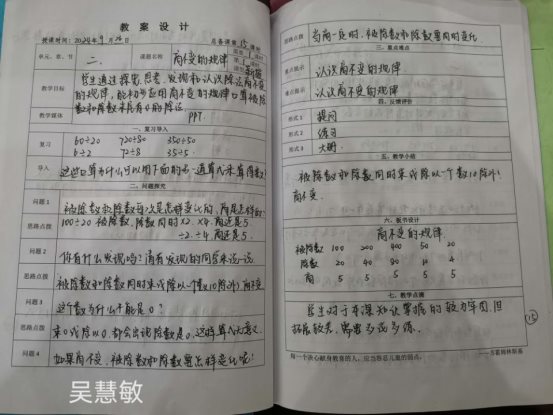 教 案 设 计
授课时间：2024年9月26日 总备课第15课时
单元、章、节 二 课题名称 商不变的规律 第1课时
教学目标 学生通过探究、思考、发现和认识除法商不变
的规律，能初步应用商不变的规律口算被除
数和除数末尾有0的除法。
教学媒体 PPT.
一、复习导入
复习 60÷20 720÷80 350÷50
6÷2 72÷8 35÷5
导入 这些口算为什么可以用下面的另一道算式来算得数？
二、问题探究
问题1 被除数和除数每次是怎样变化的，商是怎样的？
思路点拨 100÷20 被除数、除数同时×2、×4 商还是5
÷2、÷4 商还是5.
问题2 你有什么发现吗？请有发现的同学来说一说
思路点拨 被除数和除数同时乘或除以一个数(0除外)，商不变
问题3 这个数为什么不能是0？
思路点拨 乘0或除以0，都会出现除数是0，这样算式无意义
问题4 如果商不变，被除数和除数要怎样变化呢？
吴慧敏
思路点拨 当商一定时，被除数和除数要同时变化
三、重点难点
重点提示 认识商不变的规律
难点提示 认识商不变的规律
四、反馈评价
形式1 提问
形式2 练习
形式3
五、教学小结
被除数和除数同时乘或除以一个数(0除外)
商不变.
六、板书设计
商不变的规律
被除数 100 200 400 50 20
除数 20 40 80 10 4
商 5 5 5 5 5
七、教学点滴
学生对于本课知识掌握的较为牢固，但
拓展较差，需要多说多练.
15
每一个决心献身教育的人，应当容忍儿童的弱点。 ——苏霍姆林斯基